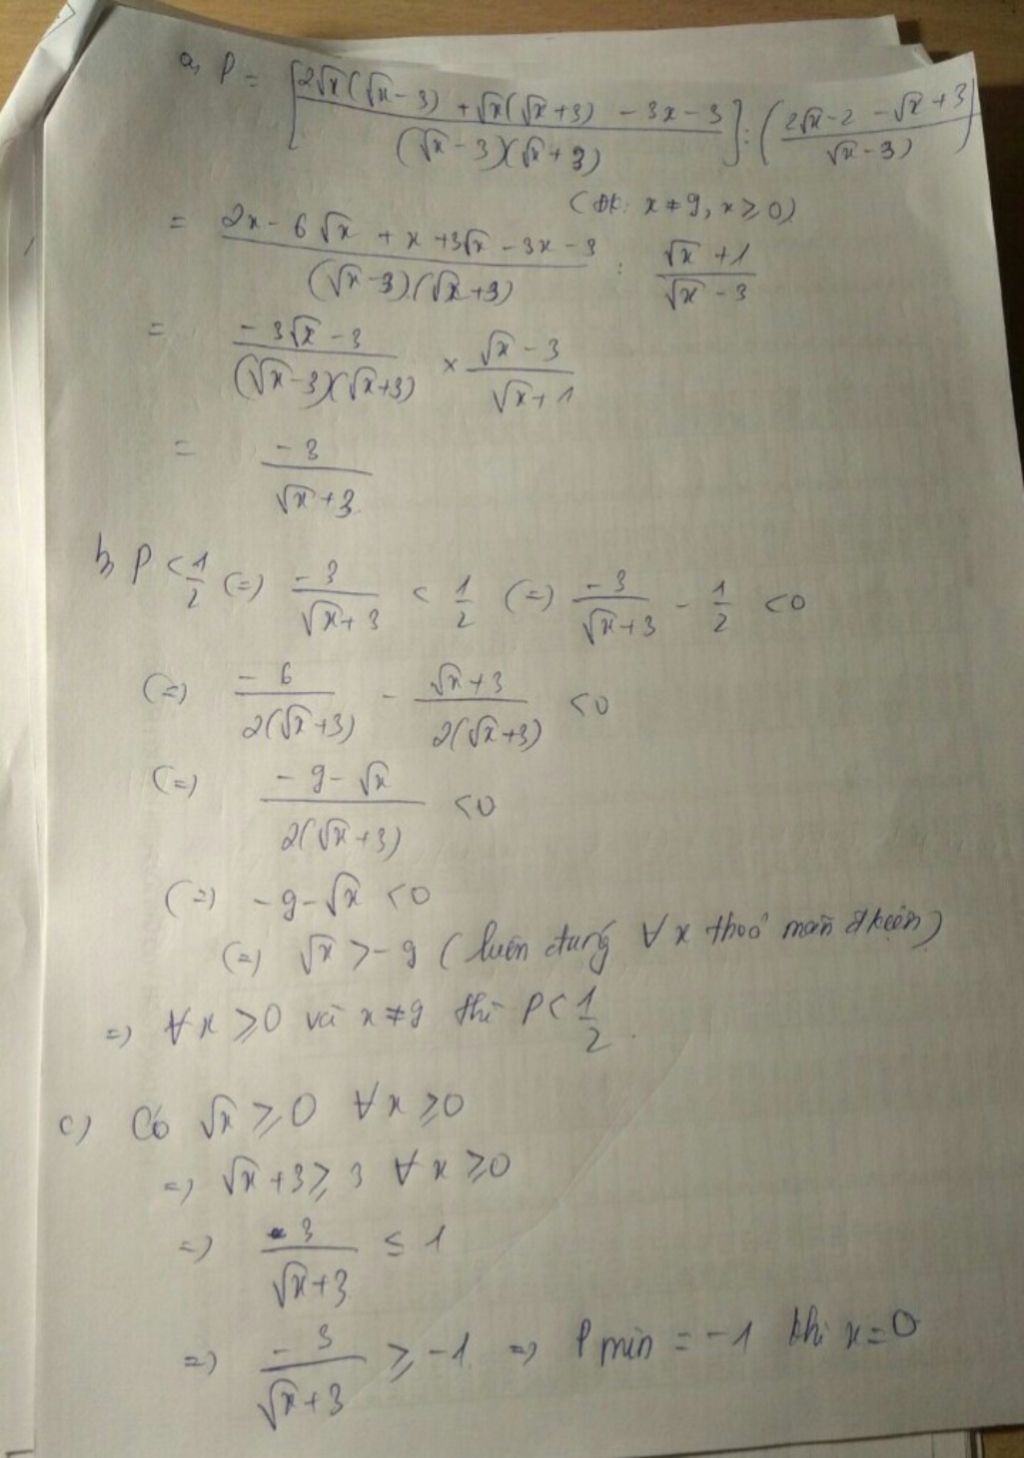 a, P = [(2√x(√x-3) + √x(√x+3) - 3x - 3)/((√x-3)(√x+3))] : ((2√x-2 - √x+3)/(√x-3))
(ĐK: x ≠ 9, x ⩾ 0)
= (2x - 6√x + x + 3√x - 3x - 3)/((√x-3)(√x+3)) : (√x+1)/(√x-3)
= (-3√x - 3)/((√x-3)(√x+3)) × (√x-3)/(√x+1)
= -3/(√x+3)
b, P < 1/2 (=) -3/(√x+3) < 1/2 (=) -3/(√x+3) - 1/2 < 0
(=) -6/(2(√x+3)) - (√x+3)/(2(√x+3)) < 0
(=) (-9-√x)/(2(√x+3)) < 0
(=) -9-√x < 0
(=) √x > -9 (luôn đúng ∀x thoả mãn đkiện)
=) ∀x ⩾ 0 và x ≠ 9 thì P < 1/2.
c) Có √x ⩾ 0 ∀x ⩾ 0
=) √x+3 ⩾ 3 ∀x ⩾ 0
=) 3/(√x+3) ≤ 1
=) -3/(√x+3) ⩾ -1 =) Pmin = -1 khi x = 0